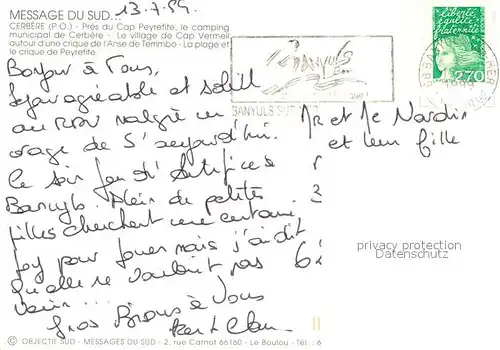 MESSAGE DU SUD...
13.7.99.
CERBÈRE (P.O.) - Près du Cap Peyrefite, le camping
municipal de Cerbère - Le village de Cap Vermeil
autour d'une crique de l'Anse de Terrimbo - La plage et
le crique de Peyrefite.
liberté
égalité
fraternité
2,70
BANYULS
BANYULS SUR
Bonjour à Tous,
Séjour agréable et soleil
au RDV malgré un
orage de 5' aujourd'hui.
Ce soir feu d'artifices
Banyuls. Plein de petites
filles cherchent une certaine
pour jouer mais j'ai dit
qu'elle ne voulait pas
venir...
Gros Bisous à Vous
et Me Nardin
et leur fille
6
privacy protection
Datenschutz
© OBJECTIF SUD - MESSAGES DU SUD - 2, rue Carnot 66160 - Le Boulou - Tél. : 6